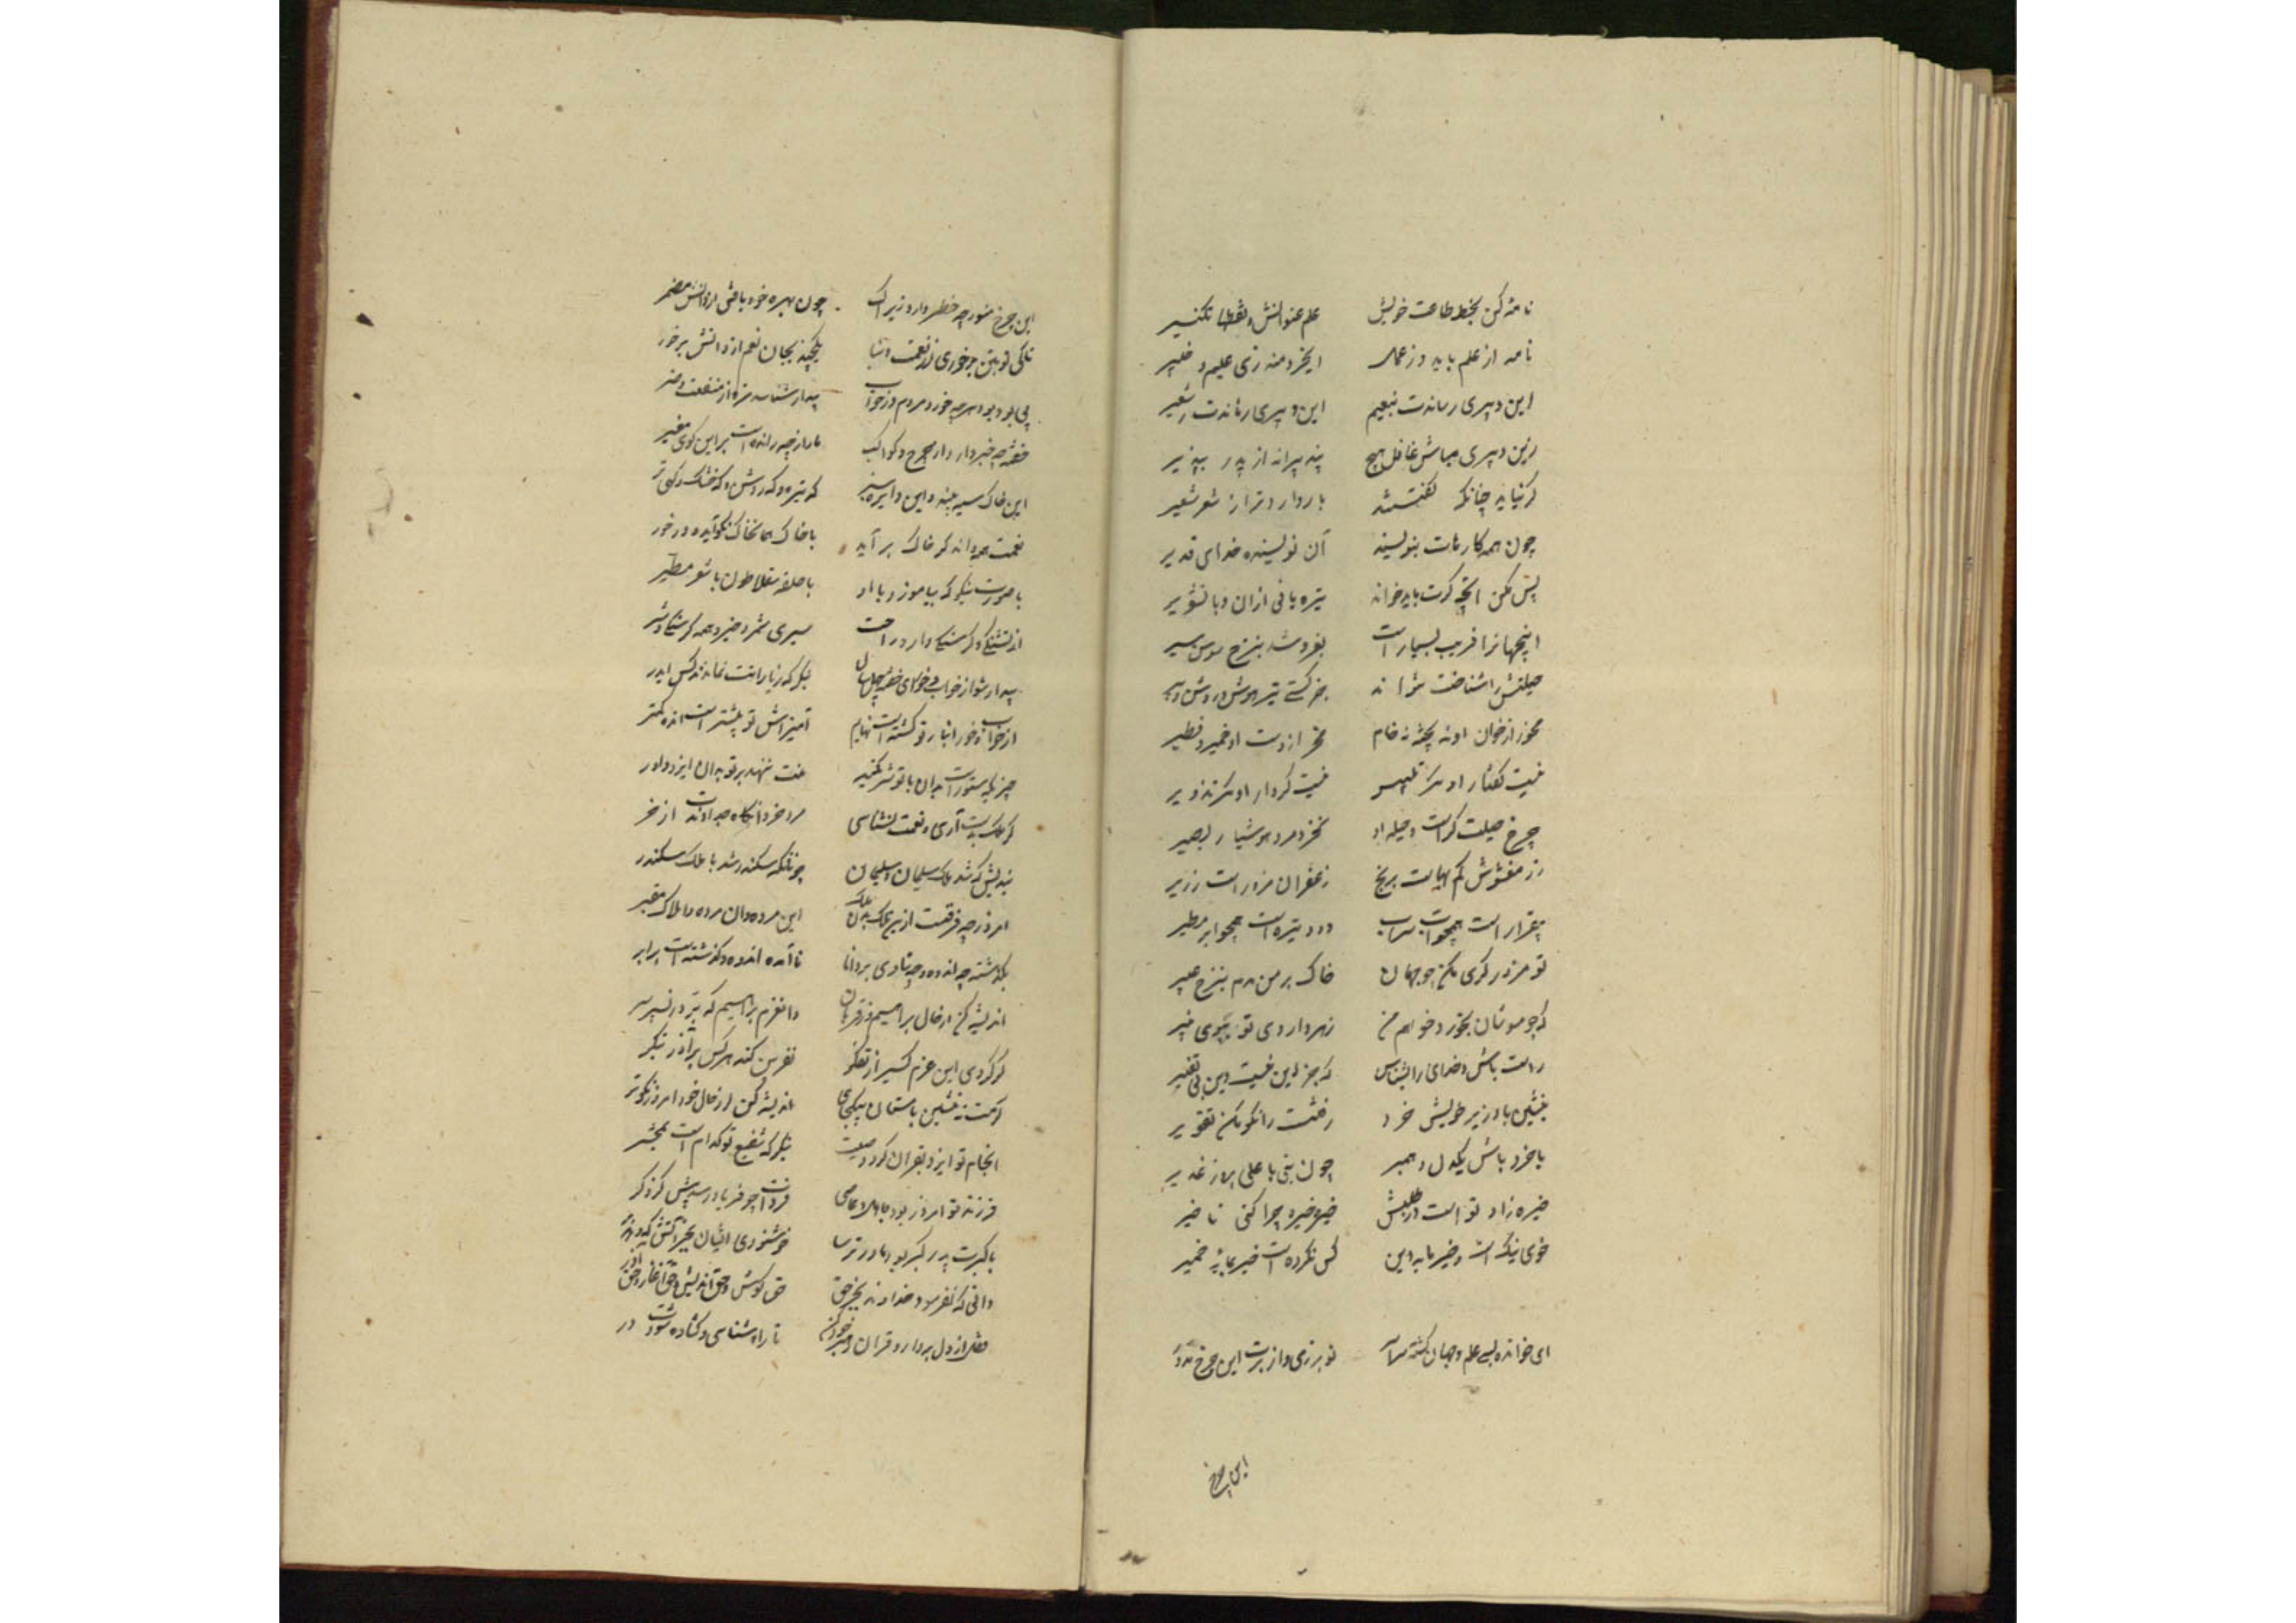 نامهٔ کن بخط طاعت خویش علم عنوانش و نقطها تکبیر
نامه از علم باید و ز عمل ای خردمند زی علیم و خبیر
این دبیری رساندت بنعیم این دبیری رهاندت ز سعیر
زین دبیری مباش غافل هیچ پند پیرانه از پدر بپذیر
گر نیاید چنانکه گفتستند بار دار دتر از شعر شعیر
چون همه کارهات بنویسد آن نویسنده خدای قدیر
پس مکن آنچه گرت باید خواند تیره مانی ازان و با تشویر
اینجهانرا فریب بسیار است بفروشد بنرخ سوسن سیر
حیلتش را شناخت نتواند جز کسی تیزهوش و روشن ویر
مخور از خوان او نه پخته نه خام مخر از دست او خمیر و فطیر
نیست گفتار او مگر تلبیس نیست کردار او مگر تزویر
چرخ حیلت گر است و حیله او نخرد مرد هوشیار بصیر
زر مغشوش کم بهاست برنج زعفران مزور است زریر
بیقرار است همچو آب سراب دود تیره است همچو ابر مطیر
تو مزور گری مکن چو جهان خاک بر من مدم بنرخ عبیر
که چو موشان نخورد خواهم من زهر داروی تو ببوی پنیر
راست باش و خدای را بشناس که جز این نیست دین بی تغییر
بنشین با وزیر خویش خرد رفتنت را نکو بکن تقریر
با خرد باش یکدل و همبر چون نبی با علی بروز غدیر
خیره زاد تو است در طلبش خیره خیره چرا کنی تاخیر
خوی نیک است و خیر مایه دین کس نکرده است خیر مایه خمیر
ای خوانده بسی علم و جهان گشته سراسر تو بر زمی و از برت این چرخ مدور
این چرخ
این چرخ مدور چه خطر دارد زیراک چون بهره خود یافتی از دانش مضمر
تا کی تو بتن بر خوری از نعمت دنیا یکچند بجان نعم از دانش بر خور
بی سود بود هر چه خورد مردم در خواب بیدار شناسد مزه از منفعت و ضر
خفته چه خبر دارد از چرخ و کواکب دادار چه رانده است بر این گوی مغبر
این خاک سیه بیند و این دایره سبز گه تیره و گه روشن و گه خشک و گهی تر
نعمت همه داند کز خاک بر آید با خاک همان خاک نکو آید و در خور
با صورت نیکو که بیامیزد با او با حلقه سقلاطون با شعر مطیر
با تشنگی و گرسنگی دارد راحت سیری شمرد خیر و همه گرسنگی شر
بیدار شو از خواب خوش ای خفته چهل سال بنگر که ز یارانت نماندند کس ایدر
از خواب و خور انباز تو گشتست بهایم آمیزش تو بیشتر است انده کمتر
چیزیکه ستورانت بدان با تو شریکند منت ننهد بر تو بدان ایزد داور
گر ملک بدست آری و نعمت بشناسی مرد خرد آنگاه جدا داندت از خر
بندیش که شد ملک سلیمان و سلیمان چونانکه سکندر شد با ملک سکندر
امروز چه فرقست از این ملک بدان ملک این مرده و آن مرده و املاک مغبر
بگذشته چه اندوه و چه شادی بر دانا ناآمده اندوه و گذشته است برابر
اندیشه کن از حال براهیم و ز قربان وان عزم براهیم که برد ز پسر سر
گر کردی این عزم کسی ز آزر فکر نفرین کندی هر کس بر آزر بتگر
گر مست نه منشین با مستان یکجای اندیشه کن از حال خود امروز نکوتر
انجام تو ایزد بقرآن کرد وصیت بنگر که شفیع تو کدام است بمحشر
فرزند تو امروز بود جاهل و عاصی فردات چه فریاد رسد پیش گروگر
با گبرت پدر گبر بود مادر ترسا خوشنودی ایشان بجز آتش چه دهد بر
دانی که نفرمود خداوند بجز حق حق گوی و حق اندیش و حق آغاز و حق آور
قفل از دل بردار و قرآن رهبر خود کن تا راه شناسی و گشاده شودت در